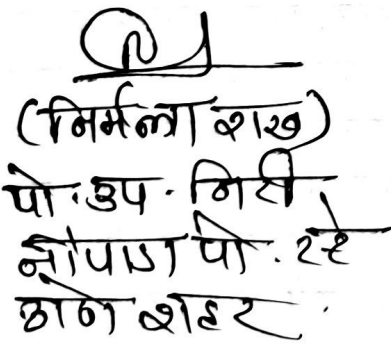 (निर्मला शख)
पो. उप. निरी.
नौपाडा पो. स्टे
ठाणे शहर.